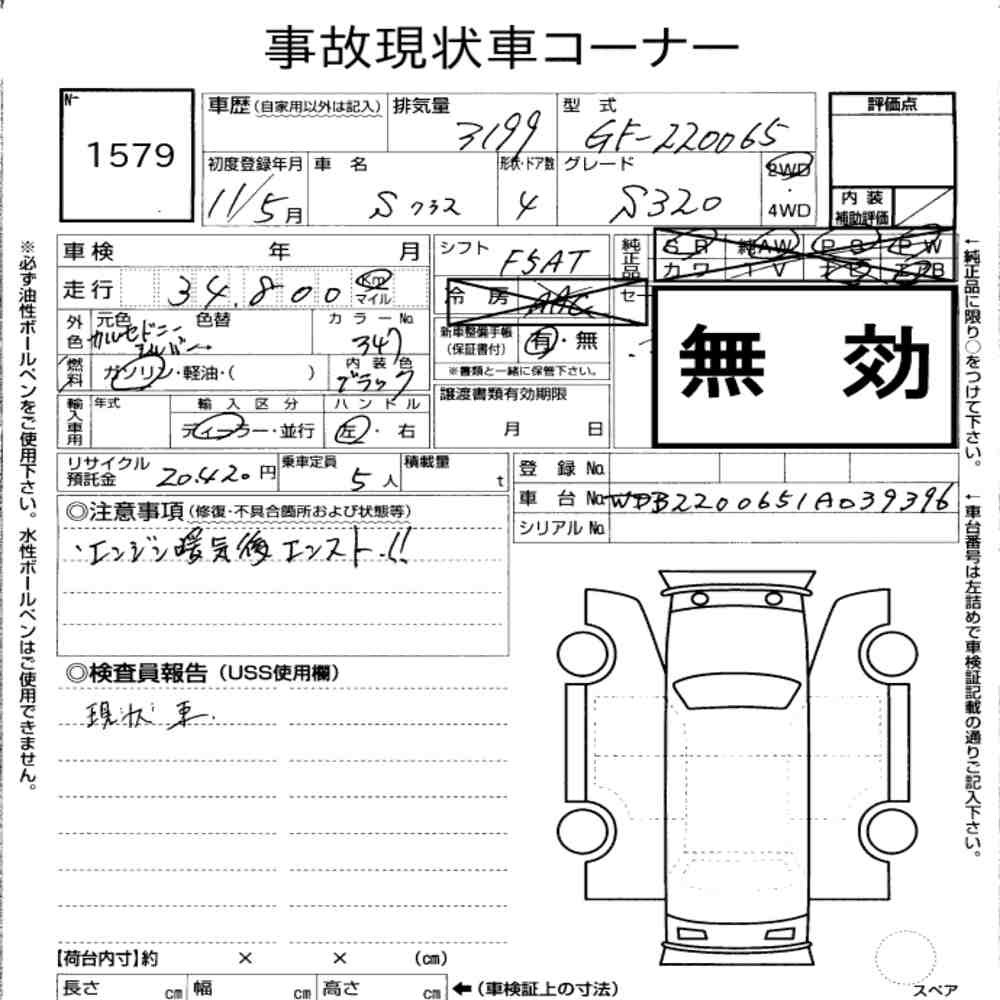 事故現状車コーナー
No 1579
車歴(自家用以外は記入) 排気量 3199 型式 GF-220065 評価点
初度登録年月 11/5月 車名 Sクラス 形状・ドア数 4 グレード S320 2WD・4WD
内装補助評価
車検 年 月 シフト F5AT 純正品 SR 純AW PS PW
カワ TV
走行 34,800 Km マイル 冷房 AAC
外色 元色 色替 カルセドニーシルバー カラーNo 347
新車整備手帳(保証書付) 有・無
※書類と一緒に保管下さい。
無効
燃料 ガソリン・軽油・( ) 内装色 ブラック
譲渡書類有効期限 月 日
輸入車用 年式 輸入区分 ハンドル
ディーラー・並行 左・右
リサイクル預託金 20,420円 乗車定員 5人 積載量 t
登録No
車台No WDB2200651A039396
シリアルNo
◎注意事項(修復・不具合箇所および状態等)
・エンジン暖気後エンスト!!
◎検査員報告(USS使用欄)
現状車.
【荷台内寸】約 × × (cm)
長さ cm 幅 cm 高さ cm ←(車検証上の寸法)
スペア
※必ず油性ボールペンをご使用下さい。水性ボールペンはご使用できません。
←純正品に限り○をつけて下さい。
←車台番号は左詰めで車検証記載の通りご記入下さい。